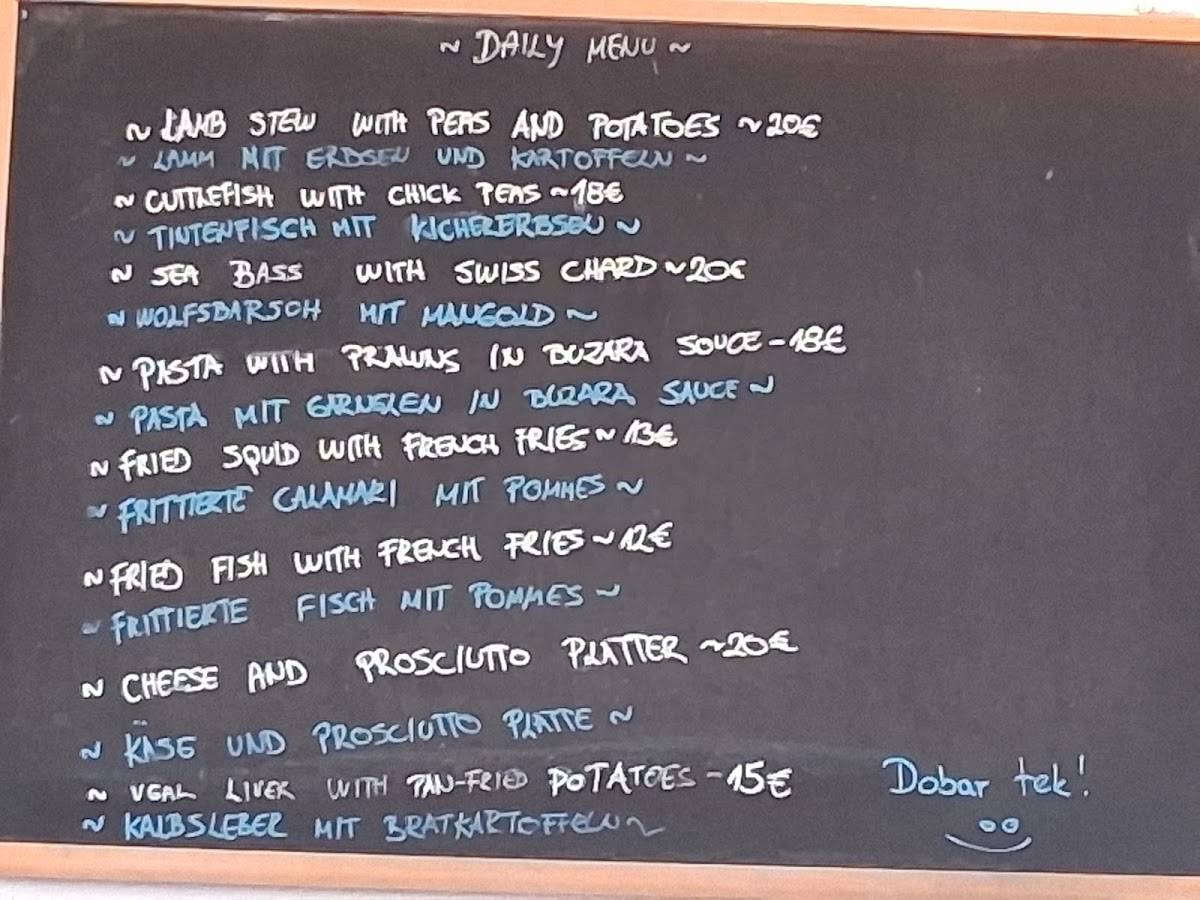 ~ DAILY MENU ~
~ LAMB STEW WITH PEAS AND POTATOES ~20€
~ LAMM MIT ERDSEN UND KARTOFFELN ~
~ CUTTLEFISH WITH CHICK PEAS ~18€
~ TINTENFISCH MIT KICHERERBSEN ~
~ SEA BASS WITH SWISS CHARD ~20€
~ WOLFSBARSCH MIT MANGOLD ~
~ PASTA WITH PRAWNS IN BUZARA SOUCE -18€
~ PASTA MIT GARNELEN IN BUZARA SAUCE ~
~ FRIED SQUID WITH FRENCH FRIES ~ 13€
~ FRITTIERTE CALAMARI MIT POMMES ~
~ FRIED FISH WITH FRENCH FRIES ~ 12€
~ FRITTIERTE FISCH MIT POMMES ~
~ CHEESE AND PROSCIUTTO PLATTER ~20€
~ KÄSE UND PROSCIUTTO PLATTE ~
~ VEAL LIVER WITH PAN-FRIED POTATOES -15€
~ KALBSLEBER MIT BRATKARTOFFELN ~
Dobar tek!